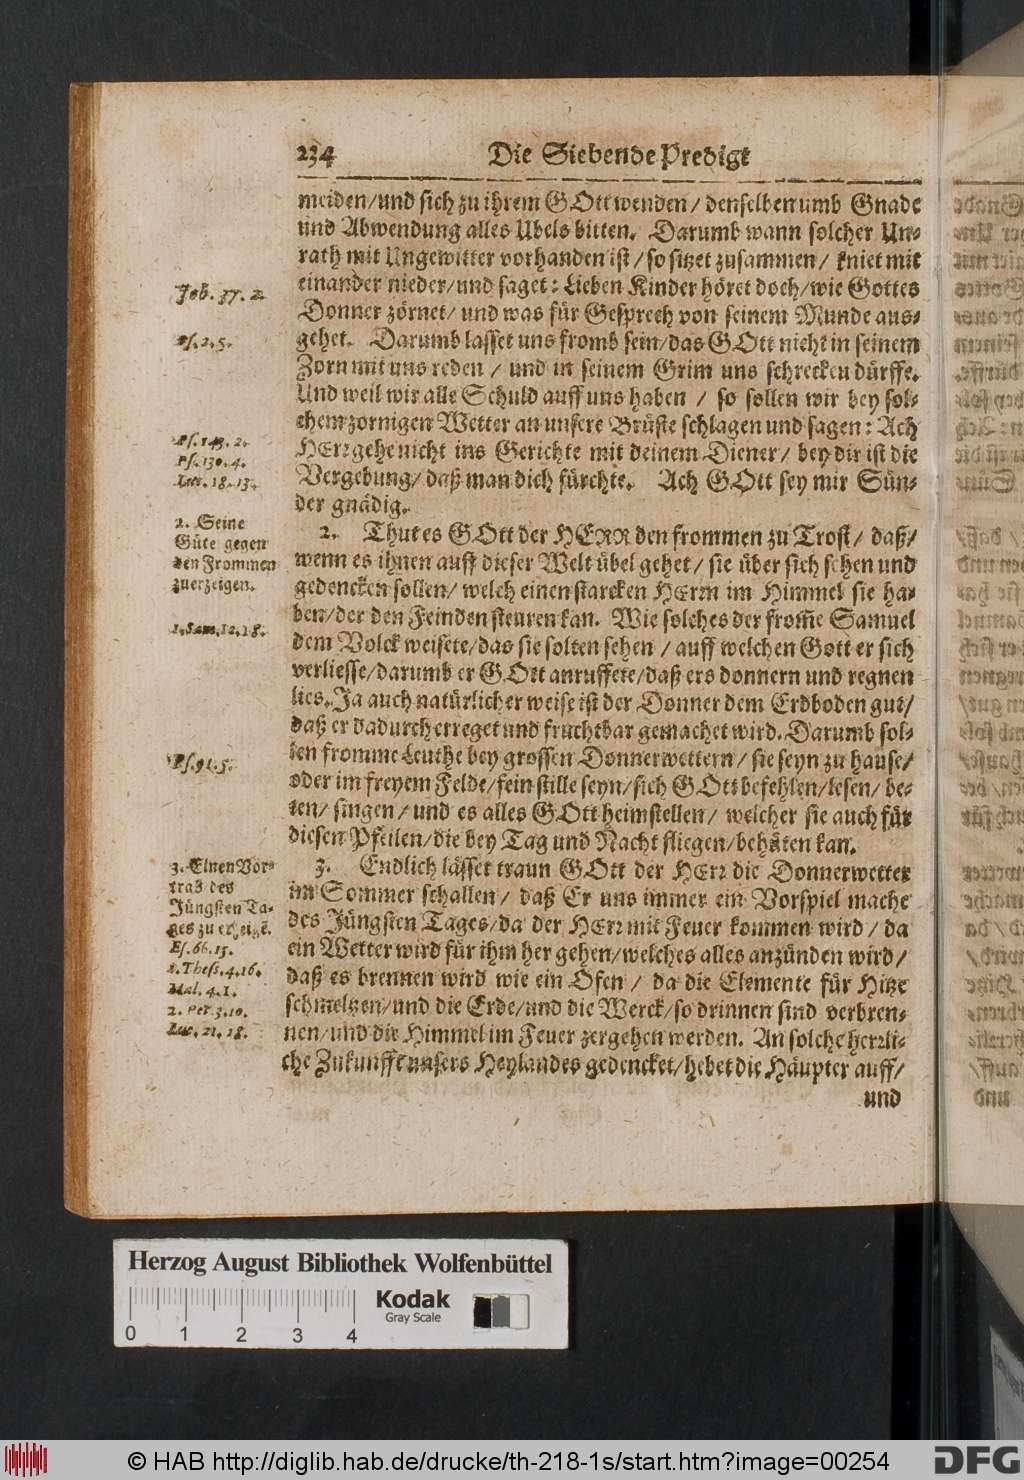 234 Die Siebende Predigt
meiden/und sich zu ihrem GOtt wenden/ denselben umb Gnade
und Abwendung alles Ubels bitten. Darumb wann solcher Un-
rath mit Ungewitter vorhanden ist/ so sitzet zusammen/ kniet mit
einander nieder/und saget: Lieben Kinder höret doch/wie Gottes
Donner zörnet/ und was für Gesprech von seinem Munde aus-
gehet. Darumb lasset uns fromb sein/das GOtt nicht in seinem
Zorn mit uns reden / und in seinem Grim uns schrecken dürffe.
Und weil wir alle Schuld auff uns haben / so sollen wir bey sol-
chem zornigen Wetter an unsere Brüste schlagen und sagen: Ach
HErr gehe nicht ins Gerichte mit deinem Diener/ bey dir ist die
Vergebung/ daß man dich fürchte. Ach GOtt sey mir Sün-
der gnädig.
2. Thut es GOtt der HERR den frommen zu Trost/ daß/
wenn es ihnen auff dieser Welt übel gehet/ sie über sich sehen und
gedencken sollen/ welch einen starcken HErrn im Himmel sie ha-
ben/der den Feinden steuren kan. Wie solches der from̃e Samuel
dem Volck weisete/das sie solten sehen/ auff welchen Gott er sich
verliesse/darumb er GOtt anruffete/daß ers donnern und regnen
lies. Ja auch natürlicher weise ist der Donner dem Erdboden gut/
daß er dadurch erreget und fruchtbar gemachet wird. Darumb sol-
len fromme Leuthe bey grossen Donnerwettern/ sie seyn zu hause/
oder im freyem Felde/fein stille seyn/sich GOtt befehlen/lesen/ be-
ten/ singen/ und es alles GOtt heimstellen/ welcher sie auch für
diesen Pfeilen/die bey Tag und Nacht fliegen/behüten kan.
3. Endlich lässet traun GOtt der HErr die Donnerwetter
im Sommer schallen/ daß Er uns immer ein Vorspiel mache
des Jüngsten Tages/da der HErr mit Feuer kommen wird/ da
ein Wetter wird für ihm her gehen/welches alles anzünden wird/
daß es brennen wird wie ein Ofen/ da die Elemente für Hitze
schmeltzen/und die Erde/und die Werck/so drinnen sind verbren-
nen/und die Himmel im Feuer zergehen werden. An solche herrli-
che Zukunfft unsers Heylandes gedencket/hebet die Häupter auff/
und
Job. 37. 2.
Ps. 2. 5.
Ps. 143. 2.
Ps. 130. 4.
Luc. 18. 13.
2. Seine
Güte gegen
den Frommen
zuerzeigen.
1. Sam. 12. 18.
Ps. 91. 5.
3. Einen Vor-
trab des
Jüngsten Ta-
ges zu erzeigē.
Es. 66. 15.
1. Thess. 4. 16.
Mal. 4. 1.
2. Pet. 3. 10.
Luc. 21. 28.
Herzog August Bibliothek Wolfenbüttel
Kodak
Gray Scale
0 1 2 3 4
© HAB http://diglib.hab.de/drucke/th-218-1s/start.htm?image=00254
DFG